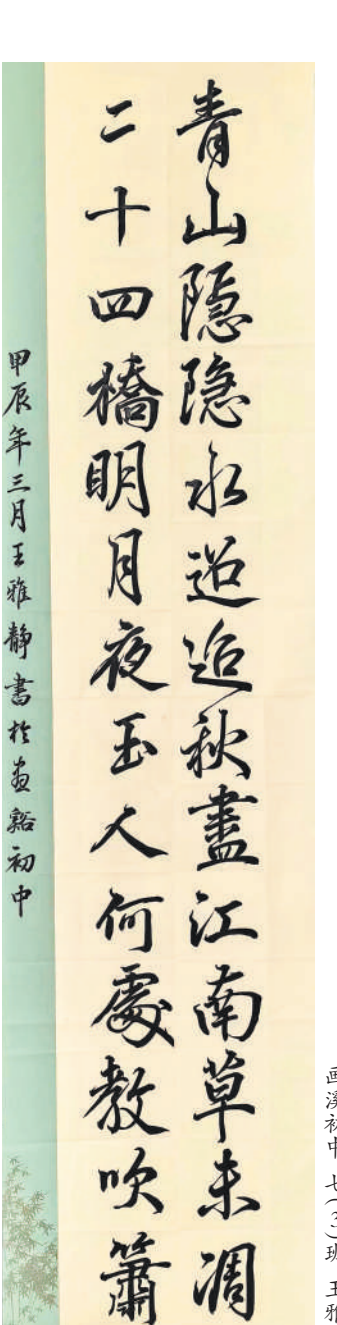 青山隐隐水迢迢秋盡江南草未凋
二十四橋明月夜玉人何處教吹簫
甲辰年三月王雅静書於畫谿初中
画溪初中 七(3)班 王雅